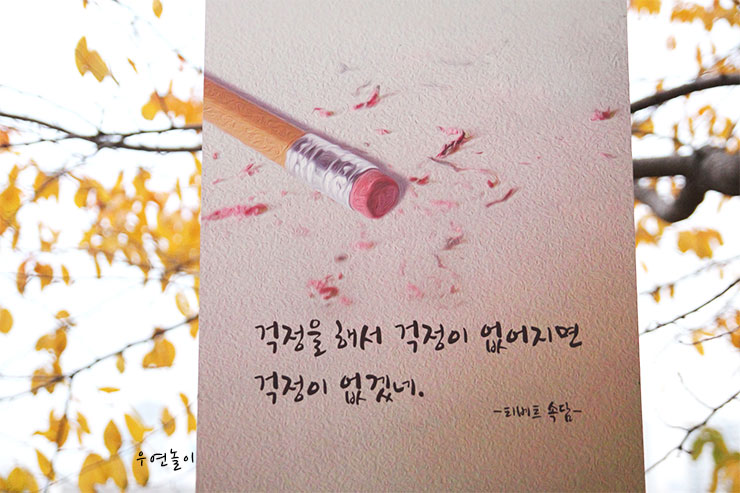 걱정을 해서 걱정이 없어지면
걱정이 없겠네.
-티베트 속담-
우연놀이